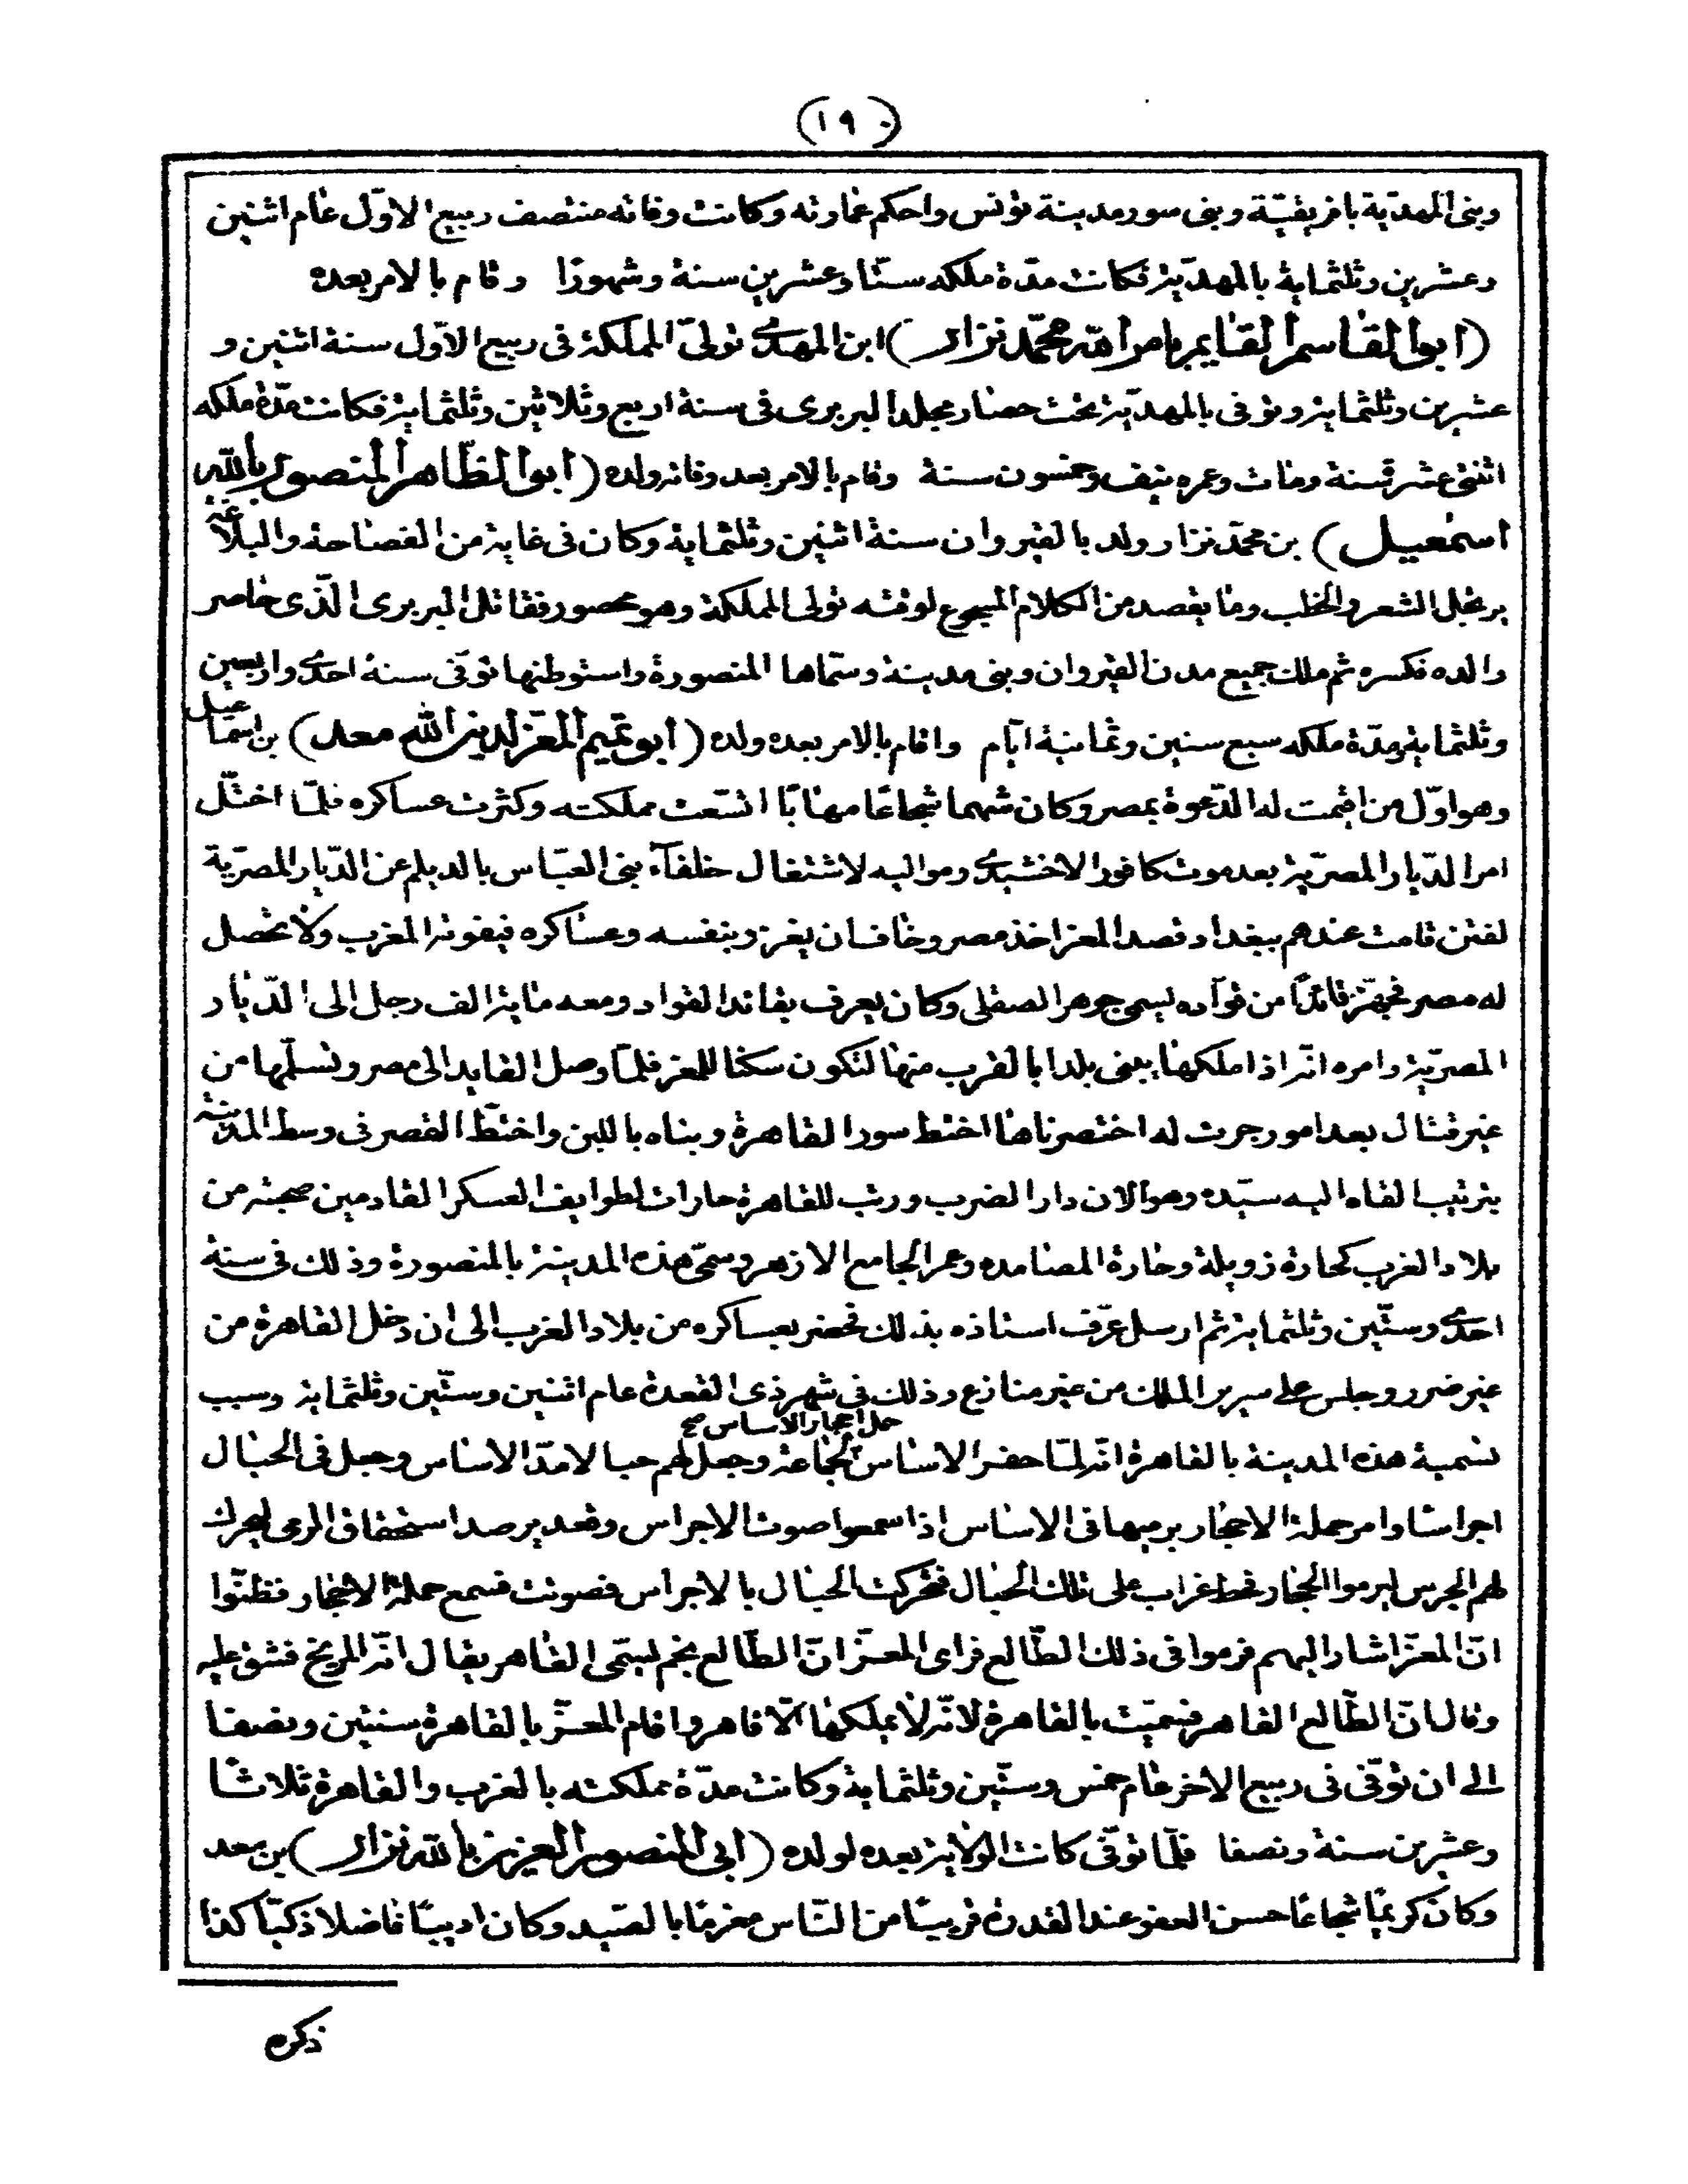 (١٩٠)
وبنى المهدّية بافريقيّة وبنى سور مدينة تونس واحكم عمارته وكانت وفاته منتصف ربيع الاوّل عام اثنين
وعشرين وثلثماية بالمهديّة فكانت مدّة ملكه ستّا وعشرين سنة وشهورا وقام بالامر بعده
(ابوالقاسم القايم بامر الله محمّد نزار) ابن المهدى تولىّ المملكة فى ربيع الاوّل سنة اثنين و
عشرين وثلثماية وتوفى بالمهديّة تحت حصار مجلد البربرى فى سنة اربع وثلاثين وثلثماية فكانت مدّة ملكه
اثنتى عشرة سنة ومات وعمره نيف وخمسون سنة وقام بالامر بعد وفاته ولده (ابوالظّاهر المنصور بالله
اسمعيل) بن محمّد نزار ولد بالقيروان سنة اثنين وثلثماية وكان فى غاية من الفصاحة والبلاغة
يرتجل الشعر والخطب وما يقصد من الكلام المسجوع لوقته تولى المملكة وهو محصور فقاتل البربرى الّذى حاصر
والده فكسره ثم ملك جميع مدن القيروان وبنى مدينة وسمّاها المنصورة واستوطنها توفّى سنة احدى واربعين
وثلثماية ومدّة ملكه سبع سنين وثمانية ايّام واقام بالامر بعده ولده (ابوتميم المعزّ لدين الله معد) بن اسماعيل
وهو اوّل من اقيمت له الدّعوة بمصر وكان شهما شجاعًا مهابًا اتّسعت مملكته وكثرت عساكره فلمّا اختلّ
امر الدّيار المصريّة بعد موت كافور الاخشيدى ومواليه لاشتغال خلفآء بنى العبّاس بالديلم عن الدّيار المصرّية
لفتن قامت عندهم ببغداد قصد المعز اخذ مصر وخاف ان يغزو بنفسه وعساكره فيفوته المغرب ولا تحصل
له مصر فجهّز قائدًا من قوّاده يسمى جوهر الصقلى وكان يعرف بقائد القواد ومعه ماية الف رجل الى الدّيار
المصريّة وامره انّه اذا ملكها يبنى بلدا بالقرب منها لتكون سكنا للمعز فلمّا وصل القايد الى مصر وتسلّمها من
غير قتال بعد امور جرت له اختصرناها اختط سور القاهرة وبناه باللبن واختطّ القصر فى وسط المدينة
بترتيب القاه اليه سيّده وهو الان دار الضرب ورتب للقاهرة حارات لطوايف العسكر القادمين صحبته من
بلاد الغرب كحارة زويلة وحارة المصامده وعمر الجامع الازهر وسمّى هذه المدينة بالمنصورة وذلك فى سنة
احدى وستّين وثلثماية ثم ارسل عرّف استاذه بذلك فحضر بعساكره من بلاد الغرب الى ان دخل القاهرة من
غير ضرر وجلس على سرير الملك من غير منازع وذلك فى شهر ذى القعدة عام اثنين وستّين وثلثماية وسبب
حمل احجار الاساس صح
تسمية هذه المدينة بالقاهرة انّه لمّا حضر الاساس لجماعة وجعل لهم حبالا مدّ الاساس وجعل فى الحبال
اجراسا وامر حملة الاحجار برميها فى الاساس اذا سمعوا صوت الاجراس وقعد يرصد استحقاق الرمى ليحرك
لهم الجرس ليرموا الحجار فحط غراب على تلك الحبال فتحركت الحبال بالاجراس فصوتت فسمع حملة الاحجار فظنّوا
انّ المعزّ اشار اليهم فرموا فى ذلك الطّالع فراى المعزّ انّ الطّالع نجم ليسمّى القاهر يقال انّه المريخ فشق عليه
وقال انّ الطّالع القاهر فسميّت بالقاهرة لانّه لا يملكها الاّ قاهر واقام المعزّ بالقاهرة سنتين ونصفا
الى ان توفّى فى ربيع الاخر عام خمس وستّين وثلثماية وكانت مدّة مملكته بالغرب والقاهرة ثلاثا
وعشرين سنة ونصفا فلمّا توفّى كانت الولاية بعده لولده (ابى المنصور العزيز بالله نزار) بن معد
وكان كريمًا شجاعًا حسن العفو عند القدرة قريبًا من النّاس مغرمًا بالصّيد وكان اديبًا فاضلا ذكيّا كذا
ذكره